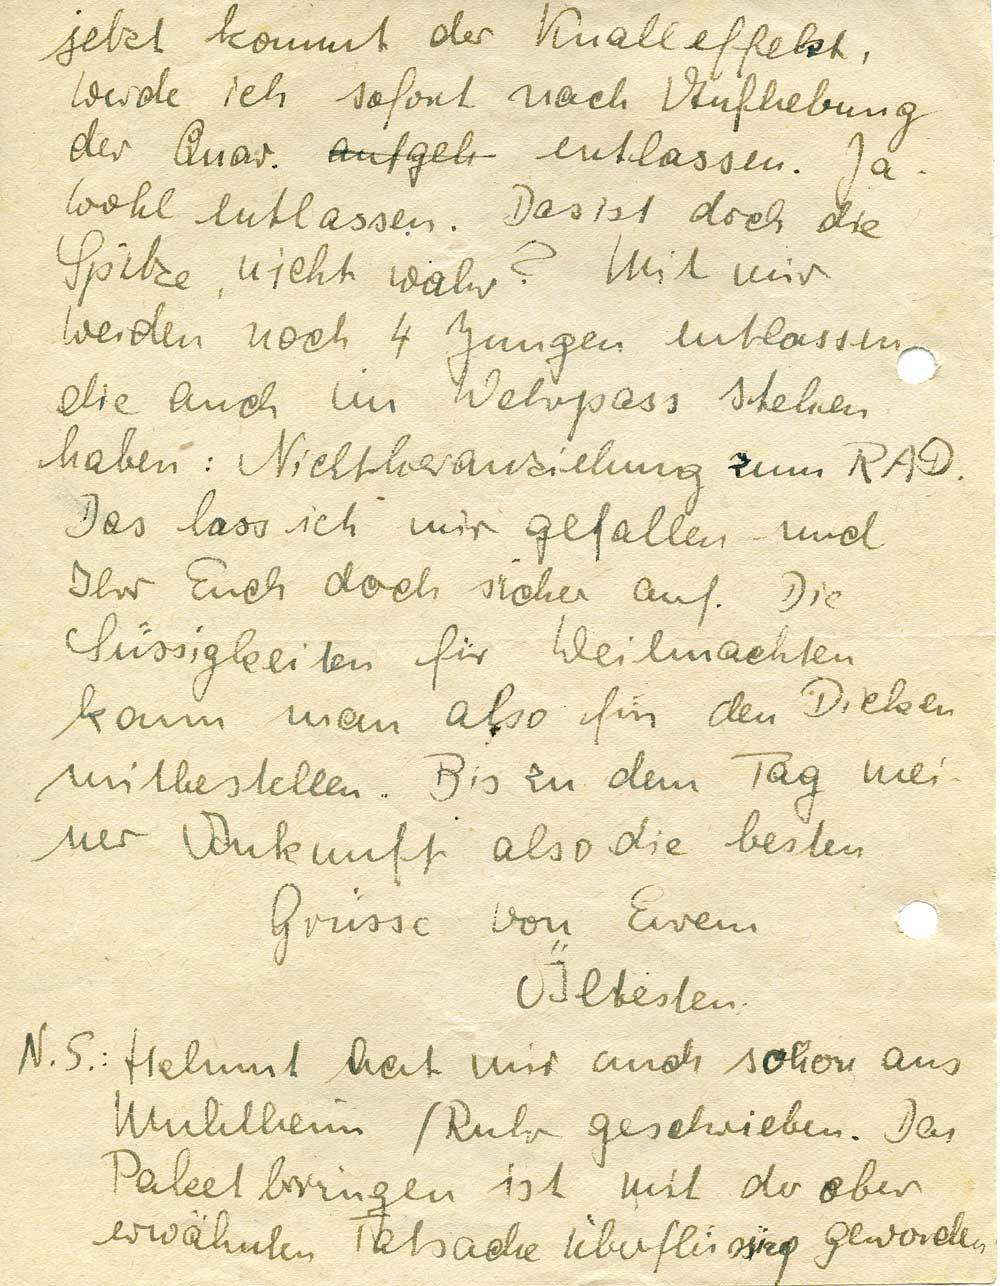 jetzt kommt der Knalleffekt,
werde ich sofort nach Aufhebung
der Quar. aufgeh entlassen. Ja-
wohl entlassen. Das ist doch die
Spitze, nicht wahr? Mit mir
werden noch 4 Jungen entlassen
die auch im Wehrpass stehen
haben: Nichtheranziehung zum RAD.
Das lass ich mir gefallen und
Ihr Euch doch sicher auf. Die
Süssigkeiten für Weihnachten
kann man also für den Dicken
mitbestellen. Bis zu dem Tag mei-
ner Ankunft also die besten
Grüsse von Eurem
Ältesten.
N.S.: Helmut hat mir auch schon aus
Muhlheim /Ruhr geschrieben. Das
Paket bringen ist mit der oben
erwähnten Tatsache überflüssig geworden.